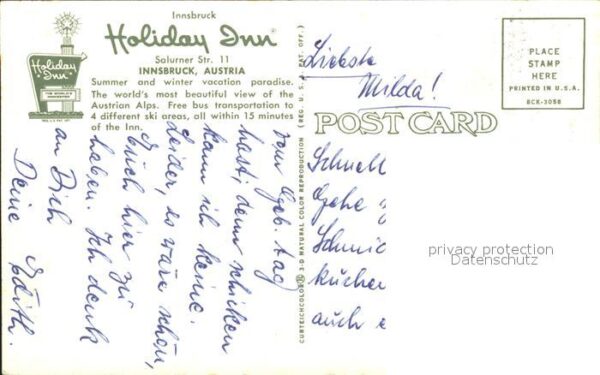 Innsbruck
Holiday Inn®
Salurner Str. 11
INNSBRUCK, AUSTRIA
Summer and winter vacation paradise.
The world's most beautiful view of the
Austrian Alps. Free bus transportation to
4 different ski areas, all within 15 minutes
of the Inn.
Holiday
Inn
CURTEICHCOLOR® 3-D NATURAL COLOR REPRODUCTION (REG. U. S. PAT. OFF.)
POST CARD
PLACE
STAMP
HERE
PRINTED IN U.S.A.
BCK-3058
Liebste
Milda!
Schnell
Gehe
Schnic
kuchen
auch e
vom Geb. tag
hast; denn schicken
kann ich keine.
Leider, es wäre schön,
Euch hier zu
haben. Ich denk
an Dich
Deine Edith.
privacy protection
Datenschutz